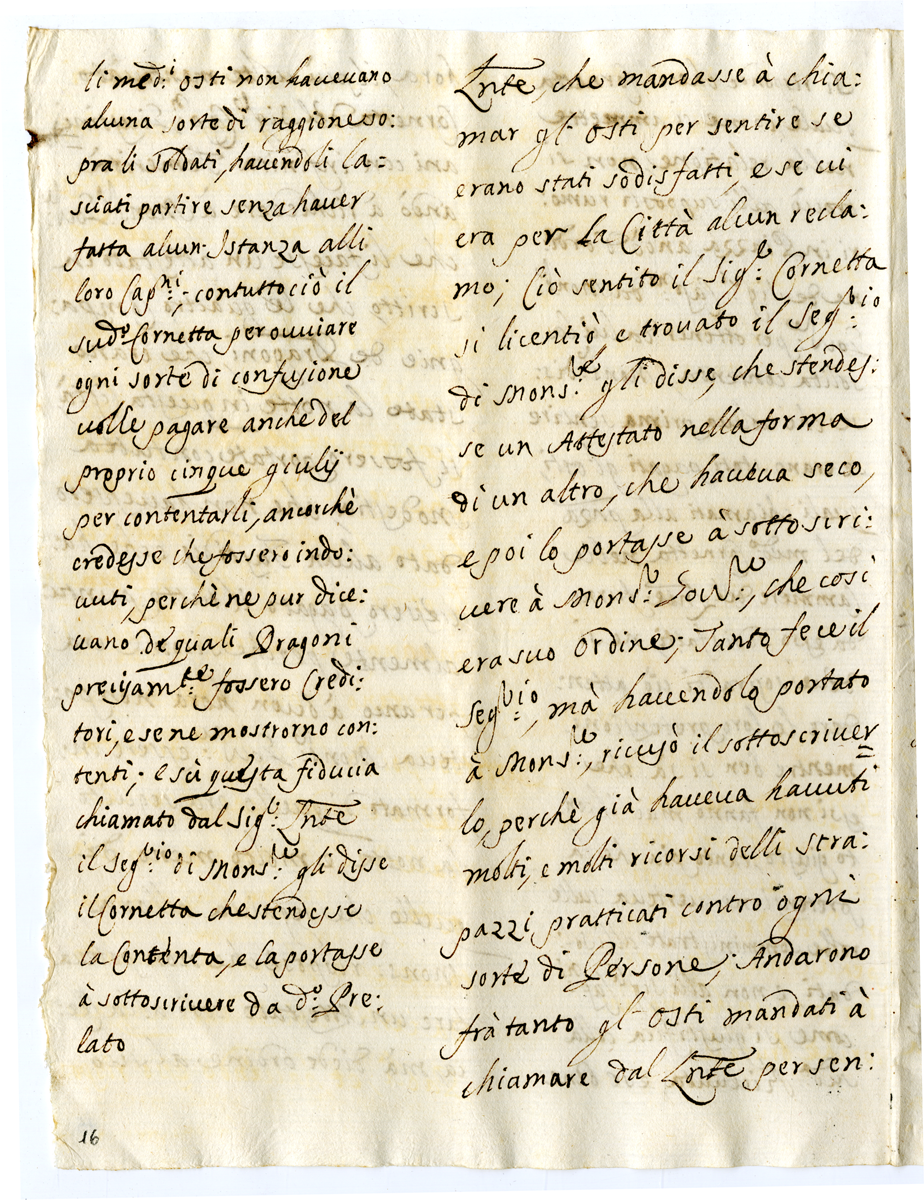 li med:i Osti non havevano
alcuna sorte di raggione so:
pra li Soldati, havendoli la=
sciati partire senza haver
fatta alcun' Istanza alli
loro Cap:ni; contuttociò il
sud:o Cornetta per ovviare
ogni sorte di confusione
volle pagare anche del
proprio cinque giulij
per contentarli, ancorchè
credesse che fossero indo:
vuti, perchè ne pur dice:
vano de quali Dragoni
precisam:te fossero Credi:
tori, e se ne mostrorno con:
tenti; e sù questa fiducia
chiamato dal Sig:r Lnte
il Seg:rio di Mons:re gli disse
il Cornetta che stendesse
la Contenta, e la portasse
à sottoscrivere da d:o Pre:
lato
16
Lnte, che mandasse à chia:
mar gl' Osti per sentire se
erano stati sodisfatti, e se vi
era per la Città alcun recla:
mo; Ciò sentito il Sig:r Cornetta
si licentiò, e trovato il Seg:rio
di Mons:re gli disse, che stendes:
se un Attestato nella forma
di un altro, che haveva seco,
e poi lo portasse à sottoscri:
vere à Mons:r Gov:re, che così
era suo Ordine; Tanto fece il
Seg:rio, mà havendolo portato
à Mons:re, ricusò il sottoscriver
lo, perchè già haveva havuti
molti, e molti ricorsi delli stra:
pazzi pratticati contro ogni
sorte di Persone; Andarono
frà tanto gl' Osti mandati à
chiamare dal Lnte per sen: